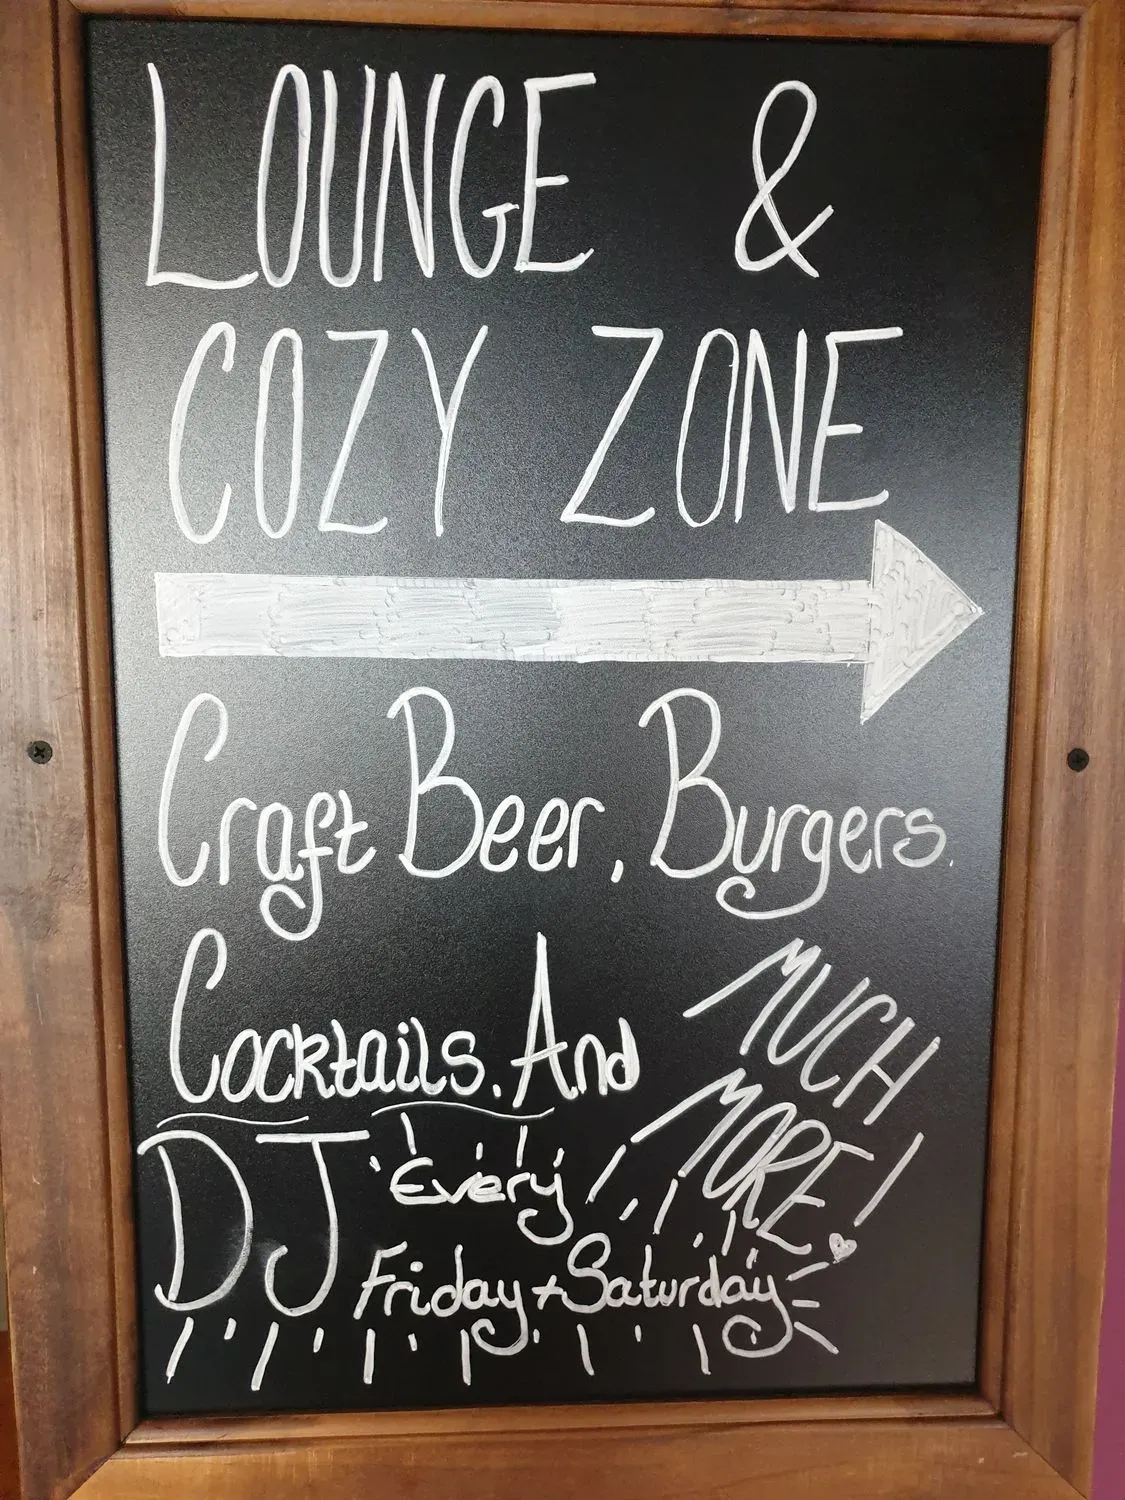 LOUNGE &
COZY ZONE
Craft Beer, Burgers.
Cocktails. And
MUCH
MORE!
DJ Every
Friday + Saturday